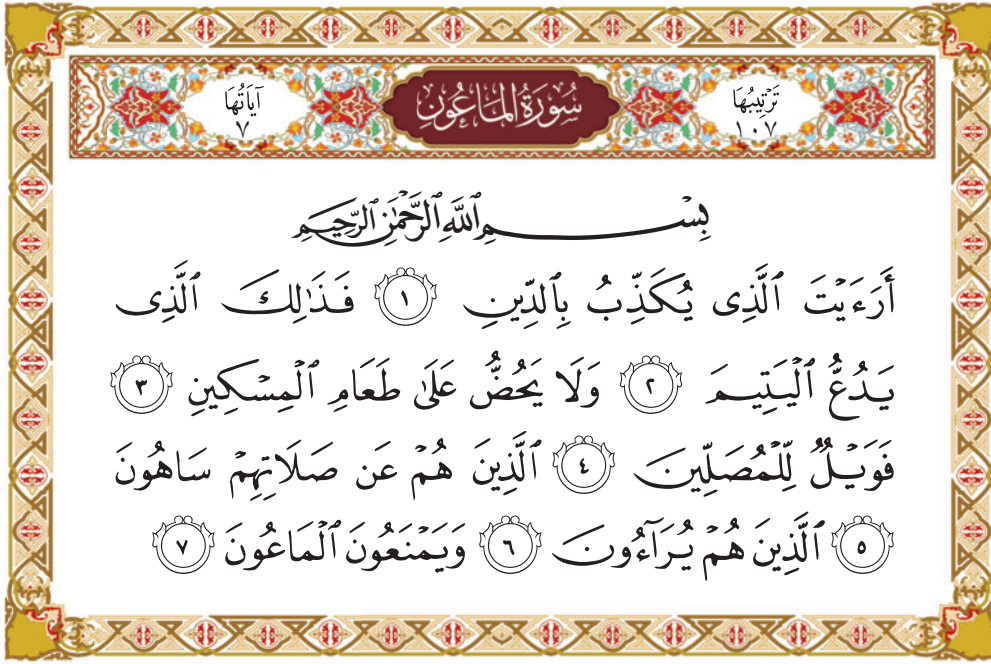 تَرْتِيبُهَا ١٠٧ سُورَةُ الْمَاعُونِ آيَاتُهَا ٧
بِسْمِ ٱللَّهِ ٱلرَّحْمَٰنِ ٱلرَّحِيمِ
أَرَءَيْتَ ٱلَّذِى يُكَذِّبُ بِٱلدِّينِ ١ فَذَٰلِكَ ٱلَّذِى
يَدُعُّ ٱلْيَتِيمَ ٢ وَلَا يَحُضُّ عَلَىٰ طَعَامِ ٱلْمِسْكِينِ ٣
فَوَيْلٌ لِّلْمُصَلِّينَ ٤ ٱلَّذِينَ هُمْ عَن صَلَاتِهِمْ سَاهُونَ
٥ ٱلَّذِينَ هُمْ يُرَآءُونَ ٦ وَيَمْنَعُونَ ٱلْمَاعُونَ ٧